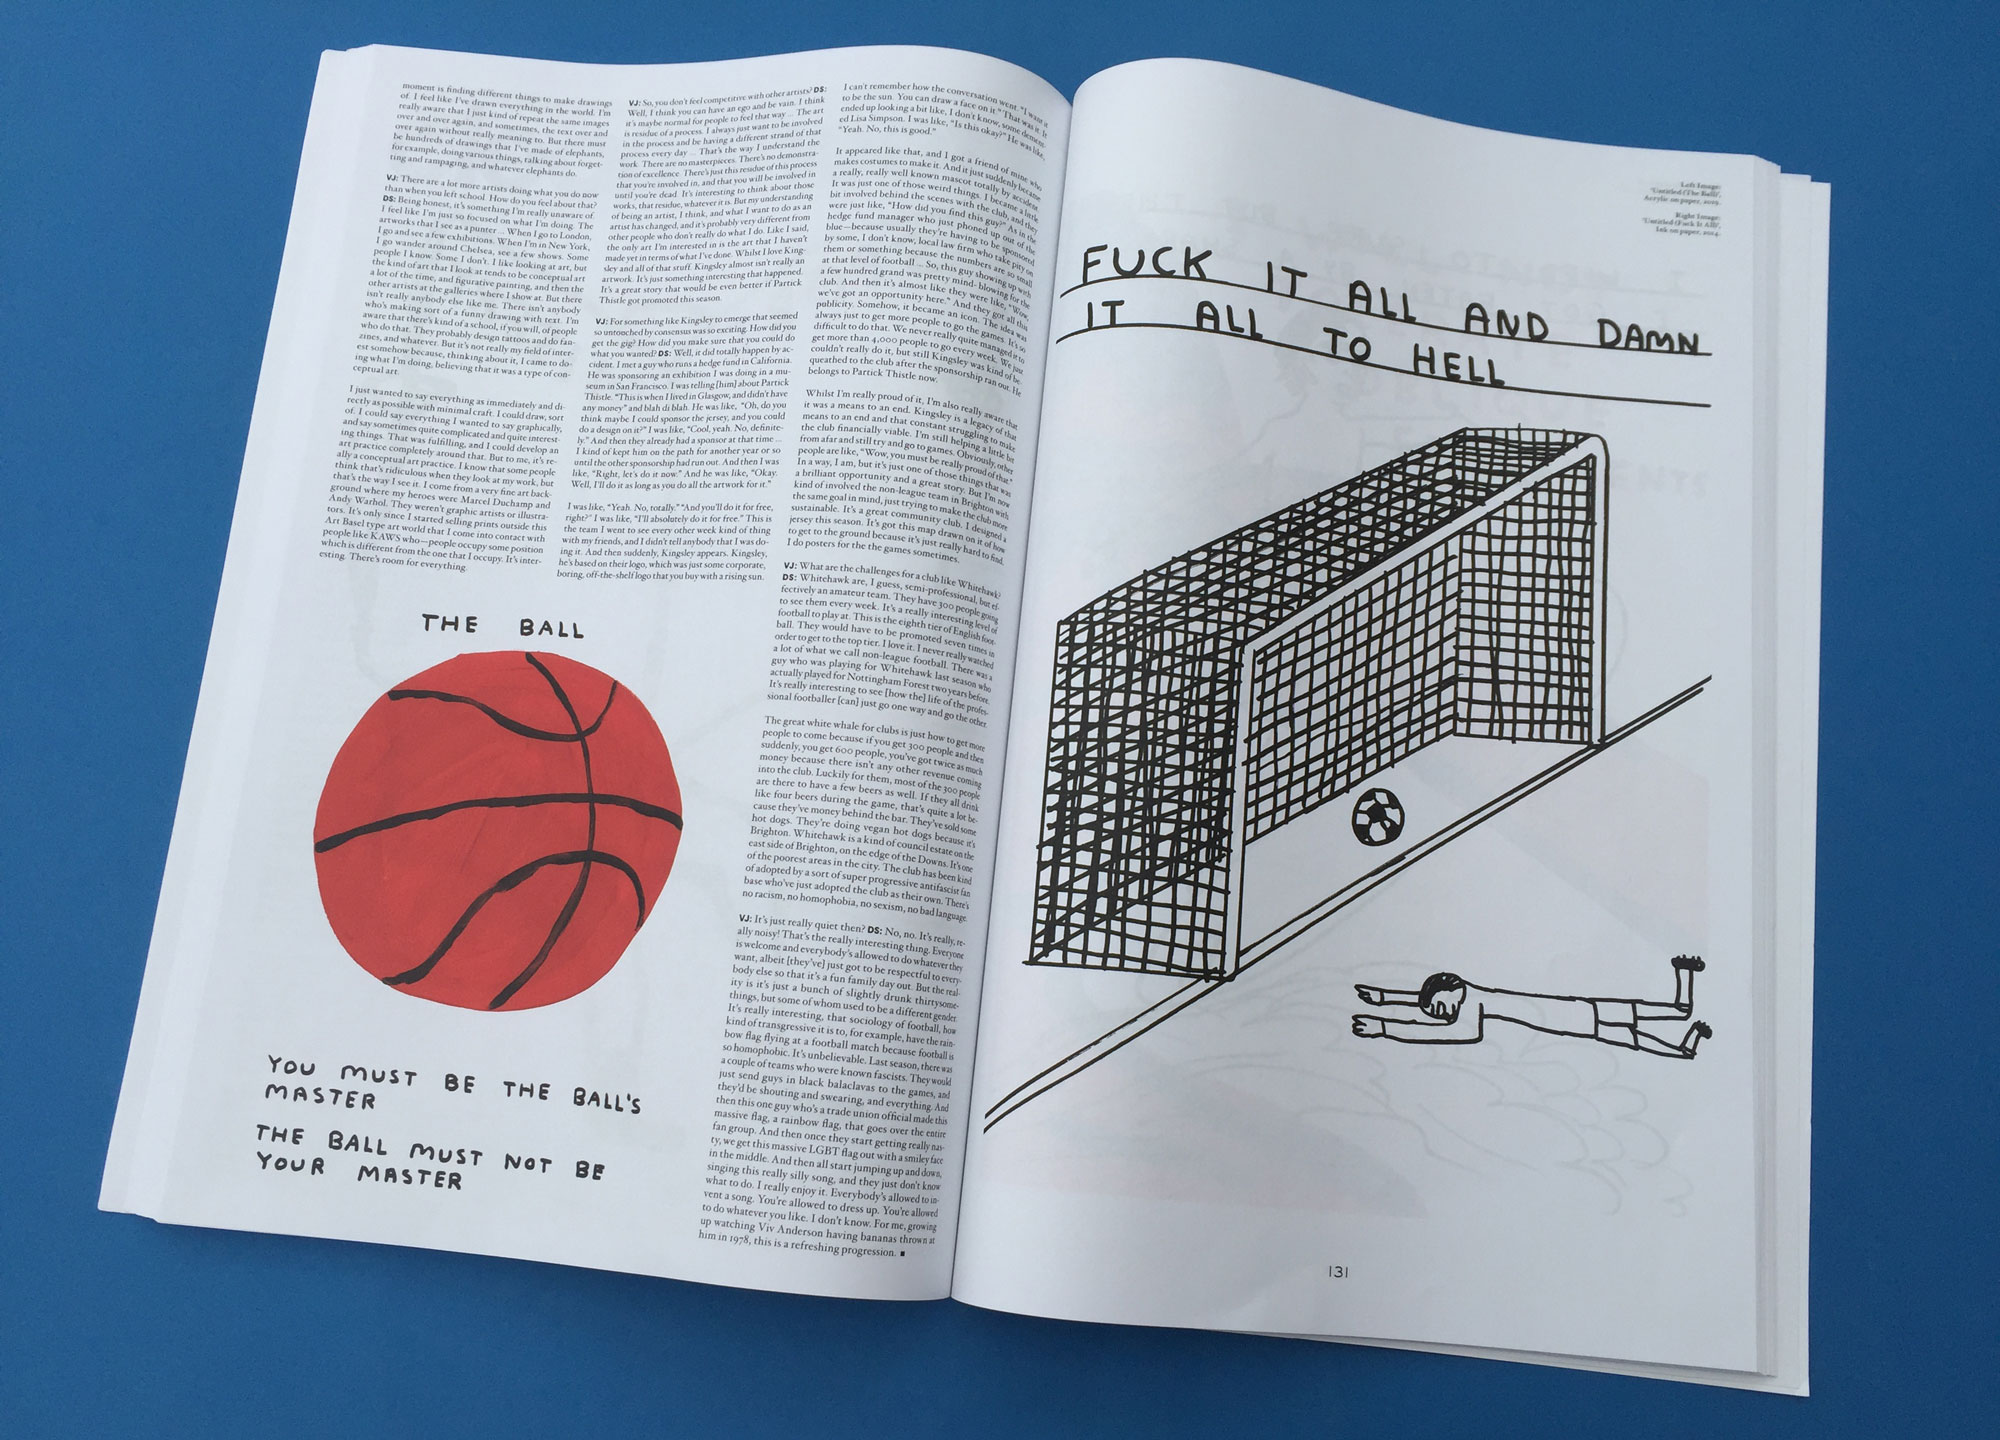 moment is finding different things to make drawings
of. I feel like I've drawn everything in the world. I'm
really aware that I just kind of repeat the same images
over and over again, and sometimes, the text over and
over again without really meaning to. But there must
be hundreds of drawings that I've made of elephants,
for example, doing various things, talking about forget-
ting and rampaging, and whatever elephants do.
VJ: There are a lot more artists doing what you do now
than when you left school. How do you feel about that?
DS: Being honest, it's something I'm really unaware of.
I feel like I'm just so focused on what I'm doing. The
artworks that I see as a punter ... When I go to London,
I go and see a few exhibitions. When I'm in New York,
I go wander around Chelsea, see a few shows. Some
people I know. Some I don't. I like looking at art, but
the kind of art that I look at tends to be conceptual art
a lot of the time, and figurative painting, and then the
other artists at the galleries where I show at. But there
isn't really anybody else like me. There isn't anybody
who's making sort of a funny drawing with text. I'm
aware that there's kind of a school, if you will, of people
who do that. They probably design tattoos and do fan-
zines, and whatever. But it's not really my field of inter-
est somehow because, thinking about it, I came to do-
ing what I'm doing, believing that it was a type of con-
ceptual art.
I just wanted to say everything as immediately and di-
rectly as possible with minimal craft. I could draw, sort
of. I could say everything I wanted to say graphically,
and say sometimes quite complicated and quite interest-
ing things. That was fulfilling, and I could develop an
art practice completely around that. But to me, it's re-
ally a conceptual art practice. I know that some people
think that's ridiculous when they look at my work, but
that's the way I see it. I come from a very fine art back-
ground where my heroes were Marcel Duchamp and
Andy Warhol. They weren't graphic artists or illustra-
tors. It's only since I started selling prints outside this
Art Basel type art world that I come into contact with
people like KAWS who—people occupy some position
which is different from the one that I occupy. It's inter-
esting. There's room for everything.
VJ: So, you don't feel competitive with other artists? DS:
Well, I think you can have an ego and be vain. I think
it's maybe normal for people to feel that way ... The art
is residue of a process. I always just want to be involved
in the process and be having a different strand of that
process every day ... That's the way I understand the
work. There are no masterpieces. There's no demonstra-
tion of excellence. There's just this residue of this process
that you're involved in, and that you will be involved in
until you're dead. It's interesting to think about those
works, that residue, whatever it is. But my understanding
of being an artist, I think, and what I want to do as an
artist has changed, and it's probably very different from
other people who don't really do what I do. Like I said,
the only art I'm interested in is the art that I haven't
made yet in terms of what I've done. Whilst I love King-
sley and all of that stuff. Kingsley almost isn't really an
artwork. It's just something interesting that happened.
It's a great story that would be even better if Partick
Thistle got promoted this season.
VJ: For something like Kingsley to emerge that seemed
so untouched by consensus was so exciting. How did you
get the gig? How did you make sure that you could do
what you wanted? DS: Well, it did totally happen by ac-
cident. I met a guy who runs a hedge fund in California.
He was sponsoring an exhibition I was doing in a mu-
seum in San Francisco. I was telling [him] about Partick
Thistle. "This is when I lived in Glasgow, and didn't have
any money" and blah di blah. He was like, "Oh, do you
think maybe I could sponsor the jersey, and you could
do a design on it?" I was like, "Cool, yeah. No, definite-
ly." And then they already had a sponsor at that time ...
I kind of kept him on the path for another year or so
until the other sponsorship had run out. And then I was
like, "Right, let's do it now." And he was like, "Okay.
Well, I'll do it as long as you do all the artwork for it."
I was like, "Yeah. No, totally." "And you'll do it for free,
right?" I was like, "I'll absolutely do it for free." This is
the team I went to see every other week kind of thing
with my friends, and I didn't tell anybody that I was do-
ing it. And then suddenly, Kingsley appears. Kingsley,
he's based on their logo, which was just some corporate,
boring, off-the-shelf logo that you buy with a rising sun.
I can't remember how the conversation went. "I want it
to be the sun. You can draw a face on it." That was it. It
ended up looking a bit like, I don't know, some dement-
ed Lisa Simpson. I was like, "Is this okay?" He was like,
"Yeah. No, this is good."
It appeared like that, and I got a friend of mine who
makes costumes to make it. And it just suddenly became
a really, really well known mascot totally by accident.
It was just one of those weird things. I became a little
bit involved behind the scenes with the club, and they
were just like, "How did you find this guy?" As in the
hedge fund manager who just phoned up out of the
blue—because usually they're having to be sponsored
by some, I don't know, local law firm who take pity on
them or something because the numbers are so small
at that level of football ... So, this guy showing up with
a few hundred grand was pretty mind-blowing for the
club. And then it's almost like they were like, "Wow,
we've got an opportunity here." And they got all this
publicity. Somehow, it became an icon. The idea was
always just to get more people to go the games. It's so
difficult to do that. We never really quite managed it to
get more than 4,000 people to go every week. We just
couldn't really do it, but still Kingsley was kind of be-
queathed to the club after the sponsorship ran out. He
belongs to Partick Thistle now.
Whilst I'm really proud of it, I'm also really aware that
it was a means to an end. Kingsley is a legacy of that
means to an end and that constant struggling to make
the club financially viable. I'm still helping a little bit
from afar and still try and go to games. Obviously, other
people are like, "Wow, you must be really proud of that."
In a way, I am, but it's just one of those things that was
a brilliant opportunity and a great story. But I'm now
kind of involved the non-league team in Brighton with
the same goal in mind, just trying to make the club more
sustainable. It's a great community club. I designed a
jersey this season. It's got this map drawn on it of how
to get to the ground because it's just really hard to find.
I do posters for the the games sometimes.
VJ: What are the challenges for a club like Whitehawk?
DS: Whitehawk are, I guess, semi-professional, but ef-
fectively an amateur team. They have 300 people going
to see them every week. It's a really interesting level of
football to play at. This is the eighth tier of English foot-
ball. They would have to be promoted seven times in
order to get to the top tier. I love it. I never really watched
a lot of what we call non-league football. There was a
guy who was playing for Whitehawk last season who
actually played for Nottingham Forest two years before.
It's really interesting to see [how the] life of the profes-
sional footballer [can] just go one way and go the other.
The great white whale for clubs is just how to get more
people to come because if you get 300 people and then
suddenly, you get 600 people, you've got twice as much
money because there isn't any other revenue coming
into the club. Luckily for them, most of the 300 people
are there to have a few beers as well. If they all drink
like four beers during the game, that's quite a lot be-
cause they've money behind the bar. They've sold some
hot dogs. They're doing vegan hot dogs because it's
Brighton. Whitehawk is a kind of council estate on the
east side of Brighton, on the edge of the Downs. It's one
of the poorest areas in the city. The club has been kind
of adopted by a sort of super progressive antifascist fan
base who've just adopted the club as their own. There's
no racism, no homophobia, no sexism, no bad language.
VJ: It's just really quiet then? DS: No, no. It's really, re-
ally noisy! That's the really interesting thing. Everyone
is welcome and everybody's allowed to do whatever they
want, albeit [they've] just got to be respectful to every-
body else so that it's a fun family day out. But the real-
ity is it's just a bunch of slightly drunk thirtysome-
things, but some of whom used to be a different gender.
It's really interesting, that sociology of football, how
kind of transgressive it is to, for example, have the rain-
bow flag flying at a football match because football is
so homophobic. It's unbelievable. Last season, there was
a couple of teams who were known fascists. They would
just send guys in black balaclavas to the games, and
they'd be shouting and swearing, and everything. And
then this one guy who's a trade union official made this
massive flag, a rainbow flag, that goes over the entire
fan group. And then once they start getting really nas-
ty, we get this massive LGBT flag out with a smiley face
in the middle. And then all start jumping up and down,
singing this really silly song, and they just don't know
what to do. I really enjoy it. Everybody's allowed to in-
vent a song. You're allowed to dress up. You're allowed
to do whatever you like. I don't know. For me, growing
up watching Viv Anderson having bananas thrown at
him in 1978, this is a refreshing progression. ■
THE BALL
YOU MUST BE THE BALL'S
MASTER
THE BALL MUST NOT BE
YOUR MASTER
Left Image:
'Untitled (The Ball)',
Acrylic on paper,
Right Image:
'Untitled (Fuck It All)',
Ink on paper, 2014.
FUCK IT ALL AND DAMN
IT ALL TO HELL
131